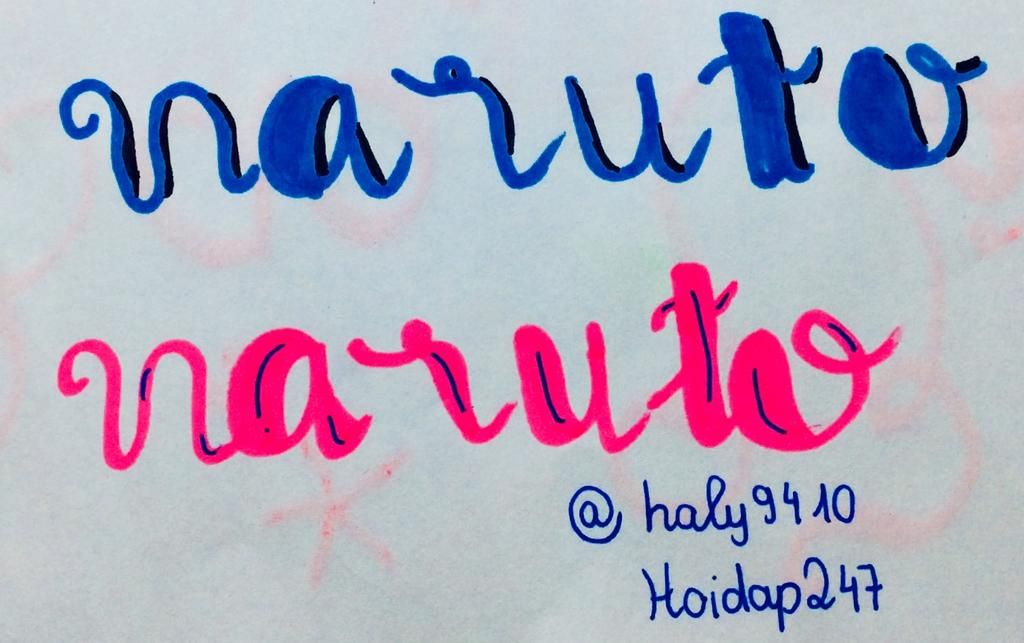 naruto
naruto
@haly9410
Hoidap247